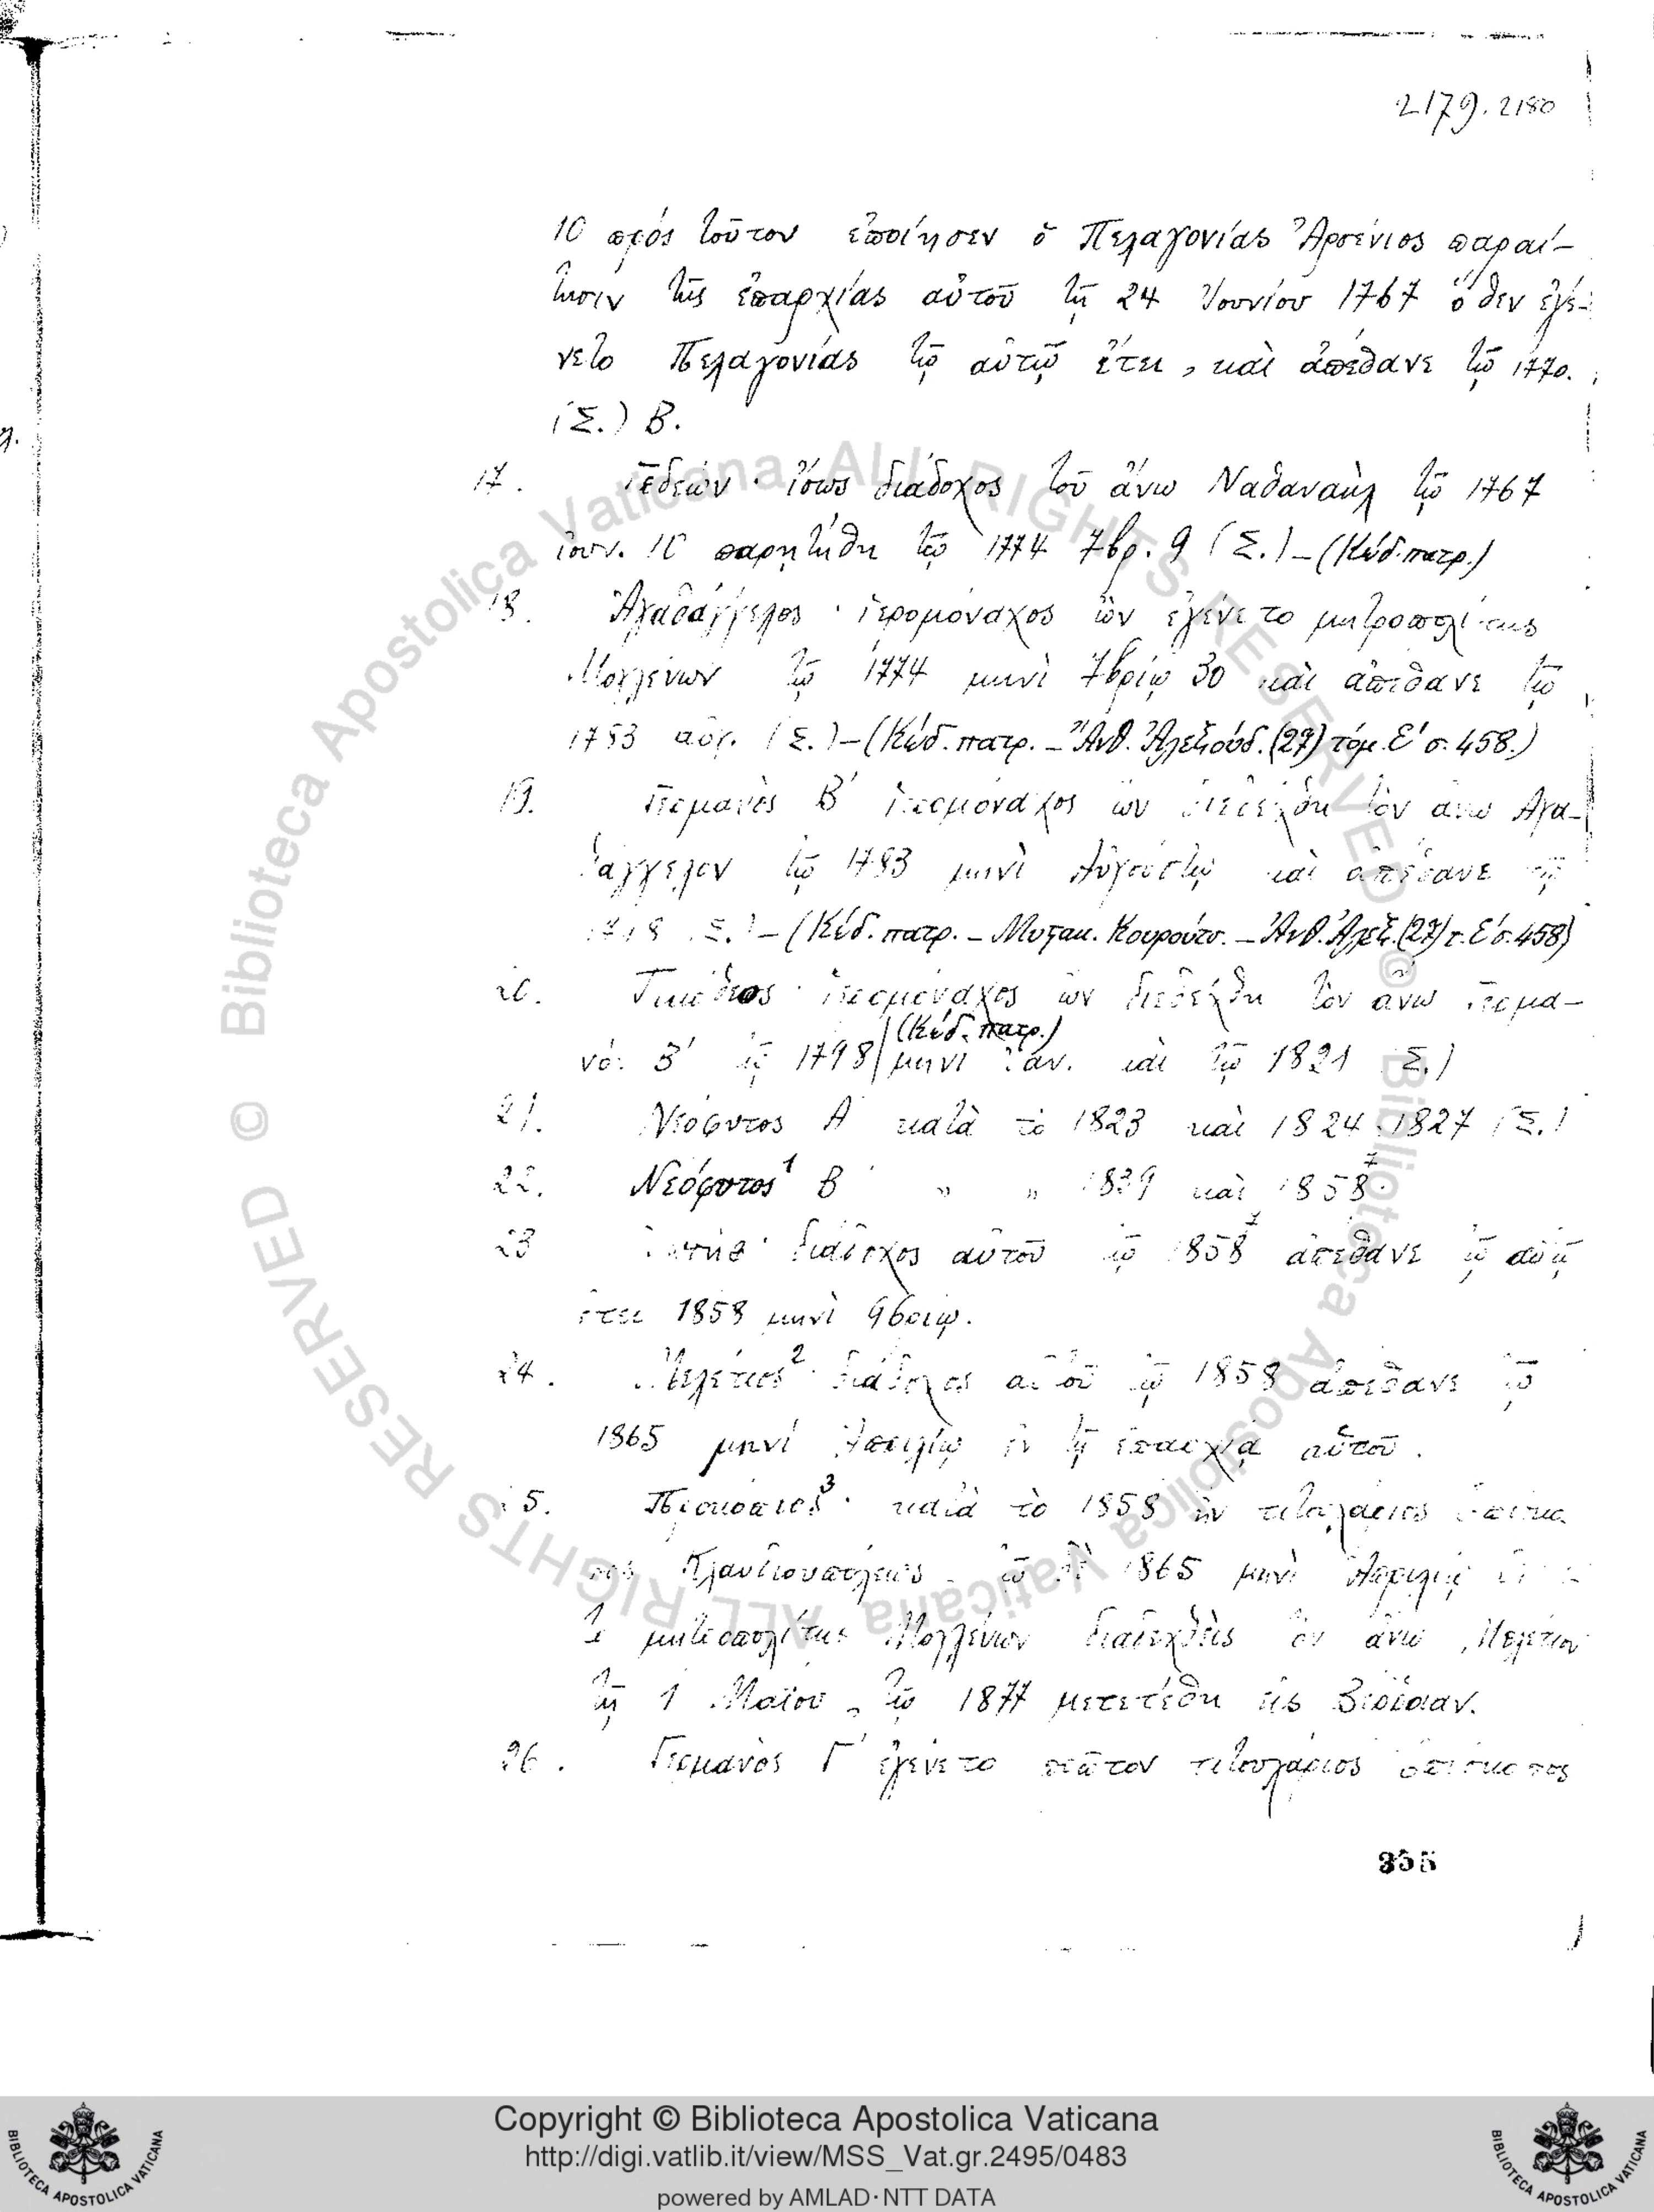 2179. 2180
10 πρός τοῦτον ἐποίησεν ὁ Πελαγονίας Ἀρσένιος παραί-
τησιν τῆς ἐπαρχίας αὐτοῦ τῇ 24 Ἰουνίου 1767 ὅθεν ἐγέ-
νετο Πελαγονίας τῷ αὐτῷ ἔτει, καὶ ἀπέθανε τῷ 1770.
(Σ.) Β.
17. Γεδεών · ἴσως διάδοχος τοῦ ἄνω Ναθαναὴλ τῷ 1767
ἰουν. 10 παρητήθη τῷ 1774 7βρ. 9 (Σ.) – (Κώδ. πατρ.)
18. Ἀγαθάγγελος · ἱερομόναχος ὢν ἐγένετο μητροπολίτης
Μογλενῶν τῷ 1774 μηνὶ 7βρίῳ 30 καὶ ἀπέθανε τῷ
1783 αὐγ. (Σ.) – (Κώδ. πατρ. – Ἀνθ. Ἀλεξούδ. (27) τόμ. Ε' σ. 458.)
19. Γερμανὸς Β' ἱερομόναχος ὢν διεδέχθη τὸν ἄνω Αγα-
θάγγελον τῷ 1783 μηνὶ Αὐγούστῳ καὶ ἀπέθανε τῷ
1798 (Σ.) – (Κώδ. πατρ. – Μυτακ. Κουρούτσ. – Ἀνθ. Ἀλεξ. (27) τ. Ε' σ. 458)
20. Τιμόθεος · ἱερομόναχος ὢν διεδέχθη τὸν ἄνω Γερμα-
νὸν Β' τῷ 1798 (Κώδ. πατρ.) μηνὶ Ἰαν. καὶ τῷ 1821 (Σ.)
21. Νεόφυτος Α' κατὰ τὸ 1823 καὶ 1824. 1827 (Σ.)
22. Νεόφυτος¹ Β' " " 1839 καὶ 1858⁷.
23 διάδοχος αὐτοῦ τῷ 1858⁷ ἀπέθανε τῷ αὐτῷ
ἔτει 1858 μηνὶ 9βρίῳ.
24. Μελέτιος² · διάδοχος αὐτοῦ τῷ 1858 ἀπέθανε τῷ
1865 μηνὶ Ἀπριλίῳ ἐν τῇ ἐπαρχίᾳ αὐτοῦ.
25. Προκόπιος³ · κατὰ τὸ 1858 ἦν τιτουλάριος ἐπίσκο
πος Κλαυδιουπόλεως. τῷ δὲ 1865 μηνὶ Ἀπριλίῳ
μητροπολίτης Μογλενῶν διαδεχθεὶς τὸν ἄνω Μελέτιον
τῇ 1 Μαΐου, τῷ 1877 μετετέθη εἰς
26. Γερμανὸς Γ' ἐγένετο πρῶτον τιτουλάριος ἐπίσκοπος
355
© Biblioteca Apostolica Vaticana ALL RIGHTS RESERVED © Biblioteca Apostolica Vaticana ALL RIGHTS RESERVED
Copyright © Biblioteca Apostolica Vaticana
http://digi.vatlib.it/view/MSS_Vat.gr.2495/0483
powered by AMLAD·NTT DATA
BIBLIOTECA APOSTOLICA VATICANA
BIBLIOTECA APOSTOLICA VATICANA